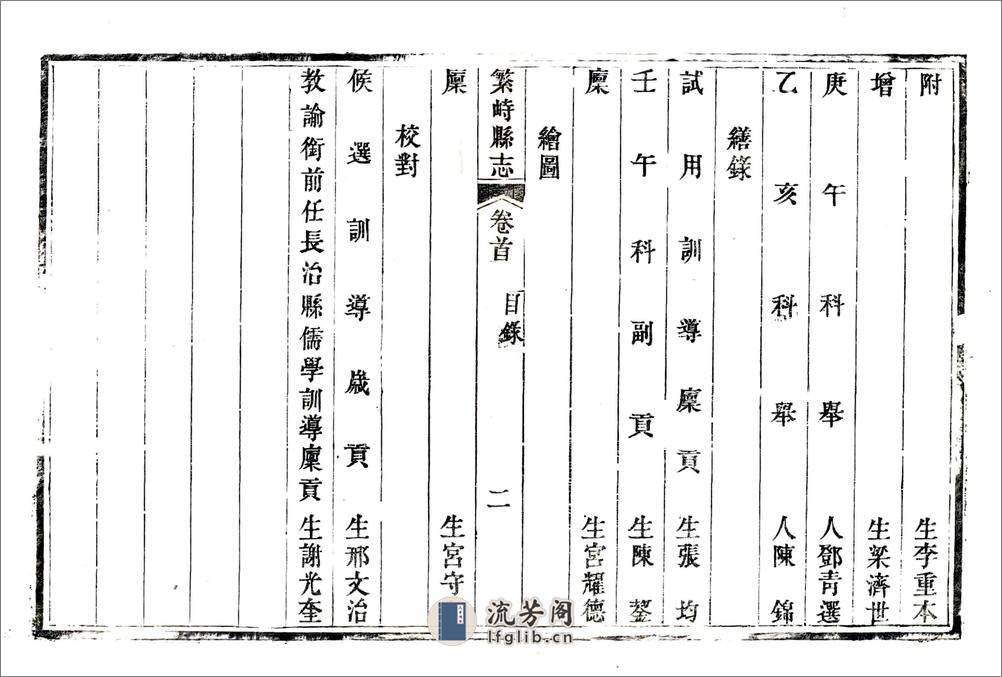 附生李重本
增生梁濟世
庚午科舉人鄧青選
乙亥科舉人陳錦
繕錄
試用訓導廩貢生張均
壬午科副貢生陳鋆
廩生宮耀德
繪圖
繁峙縣志 卷首 目錄 二
廩生宮守
校對
候選訓導歲貢生邢文治
教諭銜前任長治縣儒學訓導廩貢生謝光奎
流芳阁
lfglib.cn